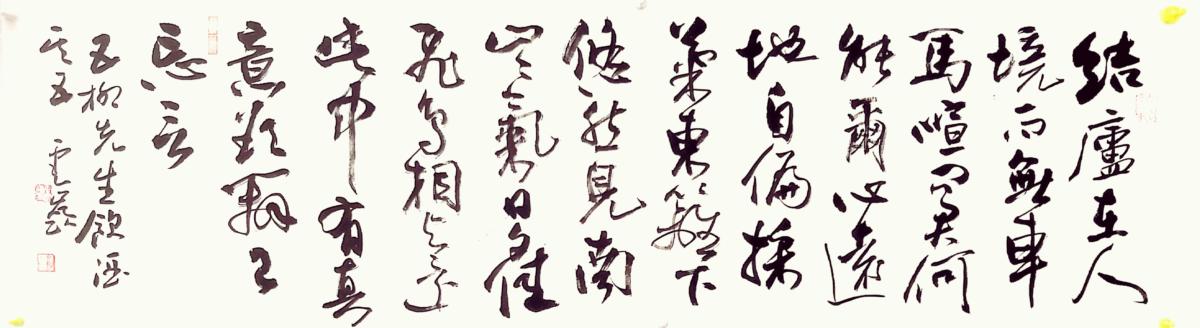 結廬在人
境而無車
馬喧問君何
能爾心遠
地自偏採
菊東籬下
悠然見南
山〻氣日夕佳
飛鳥相與還
此中有真
意欲辨已
忘言
五柳先生飲酒
其五